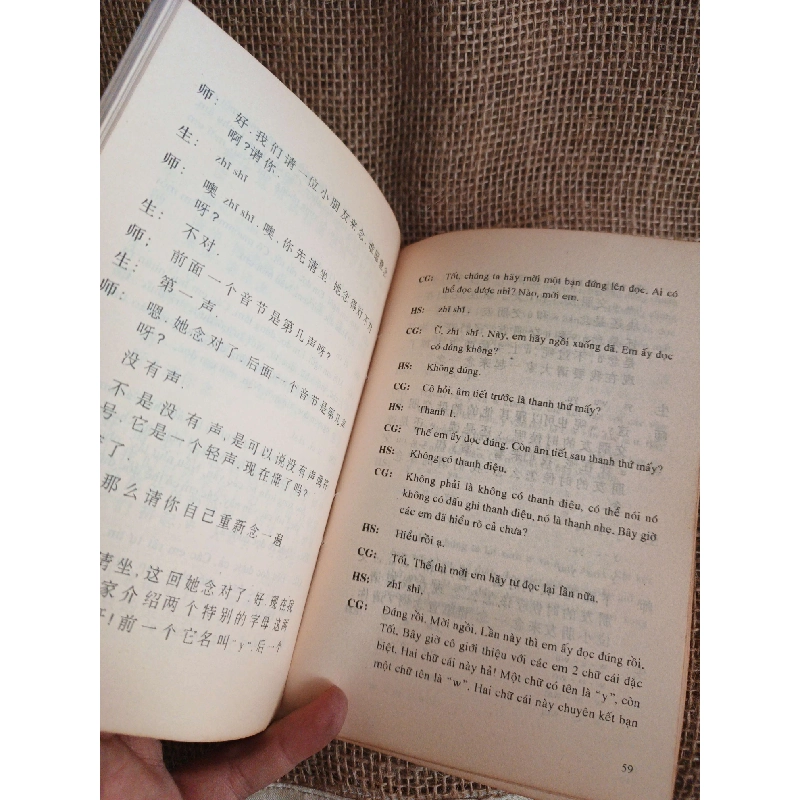 师: 好.我们请一位小朋友来念.谁愿意念
啊?请你.
生: zhī shi
师: 噢 zhī shi.噢.你先请坐.她念得对不对
呀?
生: 不对.
师: 前面一个音节是第几声呀?
生: 第一声.
师: 嗯.她念对了.后面一个音节是第几声
呀?
没有声.
不是没有声.是可以说没有声调符
号.它是一个轻声.现在懂了吗?
了.
那么请你自己重新念一遍
请坐,这回她念对了.好.现在我
家介绍两个特别的字母.这两
!前一个它名叫"y".后一个
CG: Tốt, chúng ta hãy mời một bạn đứng lên đọc. Ai có
thể đọc được nhỉ? Nào, mời em.
HS: zhī shī .
CG: Ừ, zhī shī . Này, em hãy ngồi xuống đã. Em ấy đọc
có đúng không?
HS: Không đúng.
CG: Cô hỏi, âm tiết trước là thanh thứ mấy?
HS: Thanh 1.
CG: Thế em ấy đọc đúng. Còn âm tiết sau thanh thứ mấy?
HS: Không có thanh điệu.
CG: Không phải là không có thanh điệu, có thể nói nó
không có dấu ghi thanh điệu, nó là thanh nhẹ. Bây giờ
các em đã hiểu rõ cả chưa?
HS: Hiểu rồi ạ.
CG: Tốt. Thế thì mời em hãy tự đọc lại lần nữa.
HS: zhī shi.
CG: Đúng rồi. Mời ngồi. Lần này thì em ấy đọc đúng rồi.
Tốt. Bây giờ cô giới thiệu với các em 2 chữ cái đặc
biệt. Hai chữ cái này hả! Một chữ có tên là "y", còn
một chữ tên là "w". Hai chữ cái này chuyên kết bạn
59